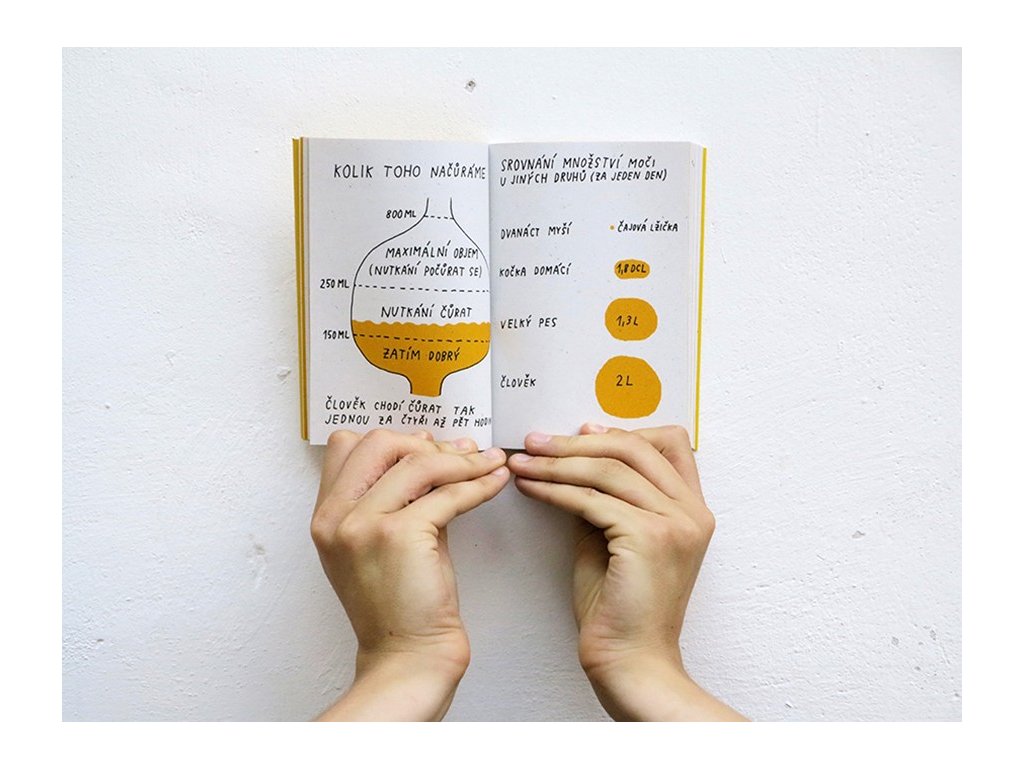 KOLIK TOHO NAČŮRÁME
800 ML
MAXIMÁLNÍ OBJEM
(NUTKÁNÍ POČŮRAT SE)
250 ML
NUTKÁNÍ ČŮRAT
150 ML
ZATÍM DOBRÝ
ČLOVĚK CHODÍ ČŮRAT TAK
JEDNOU ZA ČTYŘI AŽ PĚT HODIN
SROVNÁNÍ MNOŽSTVÍ MOČI
U JINÝCH DRUHŮ (ZA JEDEN DEN)
DVANÁCT MYŠÍ ČAJOVÁ LŽIČKA
KOČKA DOMÁCÍ 1,8 DCL
VELKÝ PES 1,3 L
ČLOVĚK 2 L